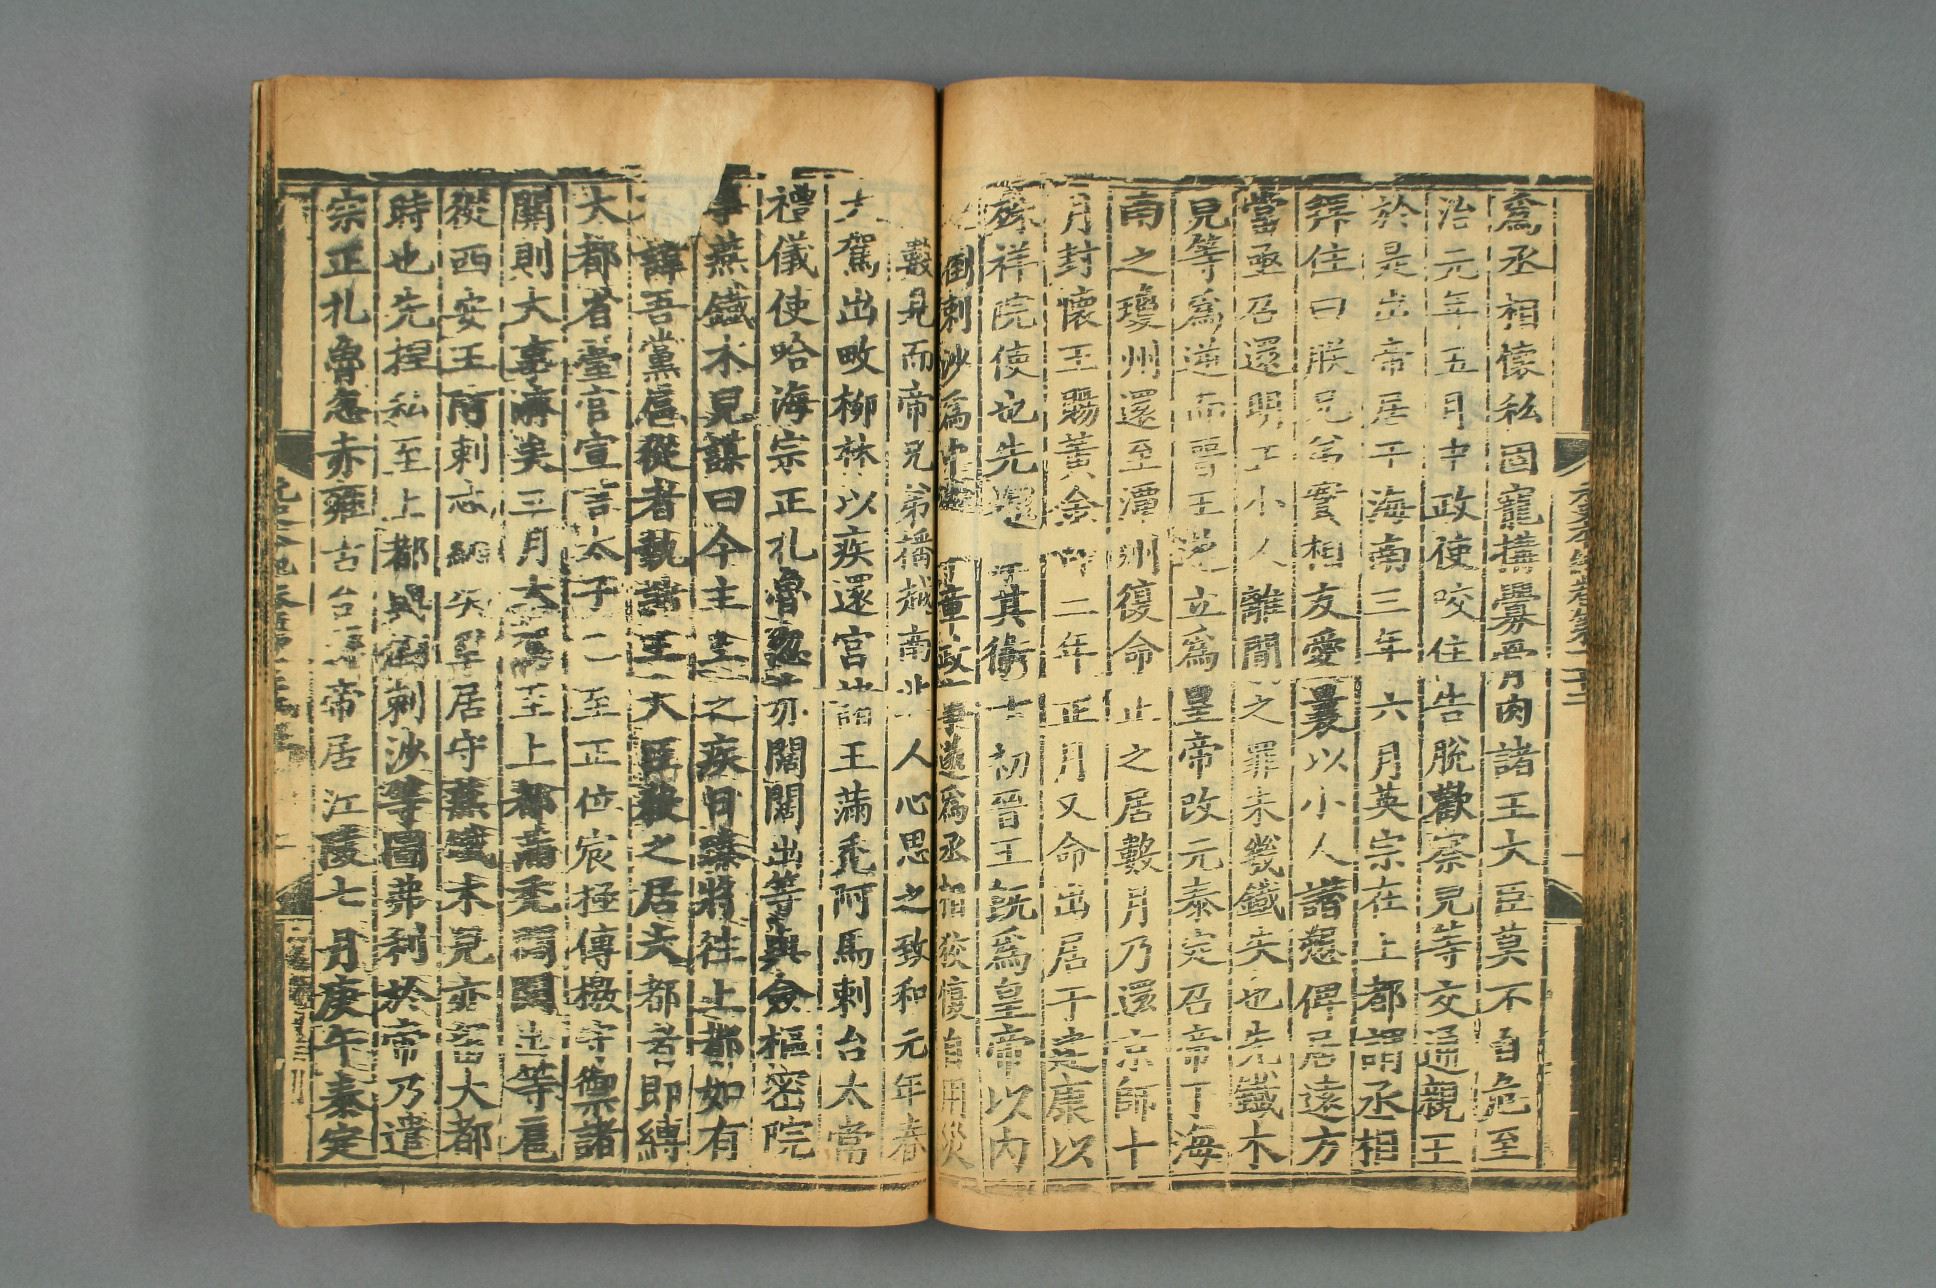 爲丞相懷私固寵搆釁骨肉諸王大臣莫不自危至
治元年五月中政使咬住告脫歡察兒等交通親王
於是出帝居于海南三年六月英宗在上都謂丞相
拜住曰朕兄弟實相友愛曩以小人譖愬俾居遠方
當亟召還明正小人離間之罪未幾鐵失也先鐵木
見等爲逆而晉王遂立爲皇帝改元泰定召帝于海
南之瓊州還至潭州復命止之居數月乃還京師十
月封懷王賜黃金印二年正月又命出居于建康以
殊祥院使也先捏 其衞士初晉王旣爲皇帝以内
倒剌沙爲中 平章政事遂爲丞相狡愎自用災
數見而帝兄弟播越南北人心思之致和元年春
大駕出畋柳林以疾還宮諸王滿禿阿馬剌台太常
禮儀使哈海宗正札魯忽赤闊闊出等與僉樞密院
事燕鐵木兒謀曰今主上之疾日臻將往上都如有
諱吾黨扈從者執諸王大臣殺之居大都者即縛
大都省臺官宣言太子已至正位宸極傳檄守禦諸
關則大事濟矣三月大駕至上都滿禿闊闊出等扈
從西安王阿剌忒納失里居守燕鐵木兒亦留大都
時也先捏私至上都與倒剌沙等圖弗利於帝乃遣
宗正札魯忽赤雍古台遷帝居江陵七月庚午泰定